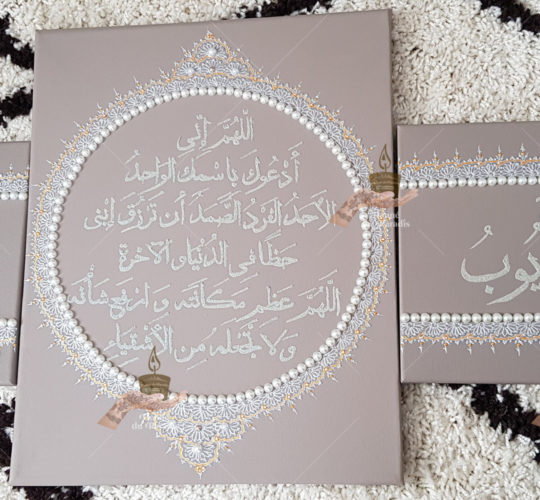 اللهم إني
أدعوك باسمك الواحد
الأحد الفرد الصمد أن ترزق إبني
حظا في الدنيا و الآخرة
اللهم عظم مكانته و ارفع شأنه
ولا تجعله من الأشقياء
يوب